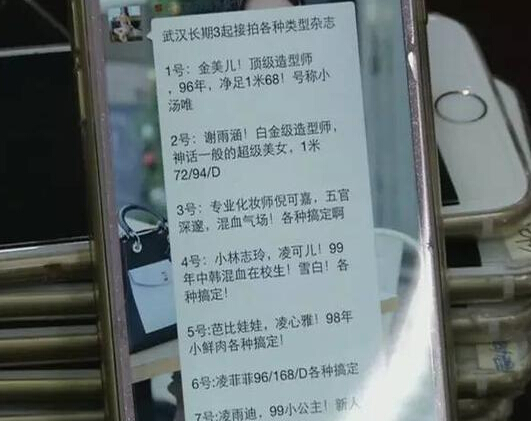 武汉长期3起接拍各种类型杂志
1号：金美儿！顶级造型师
，96年，净足1米68！号称小
汤唯
2号：谢雨涵！白金级造型师，
神话一般的超级美女，1米
72/94/D
3号：专业化妆师倪可嘉，五官
深邃，混血气场！各种搞定啊
4号：小林志玲，凌可儿！99
年中韩混血在校生！雪白！各
种搞定！
5号:芭比娃娃，凌心雅！98年
小鲜肉各种搞定！
6号:凌菲菲96/168/D各种搞定
7号:凌雨迪，99小公主！新人